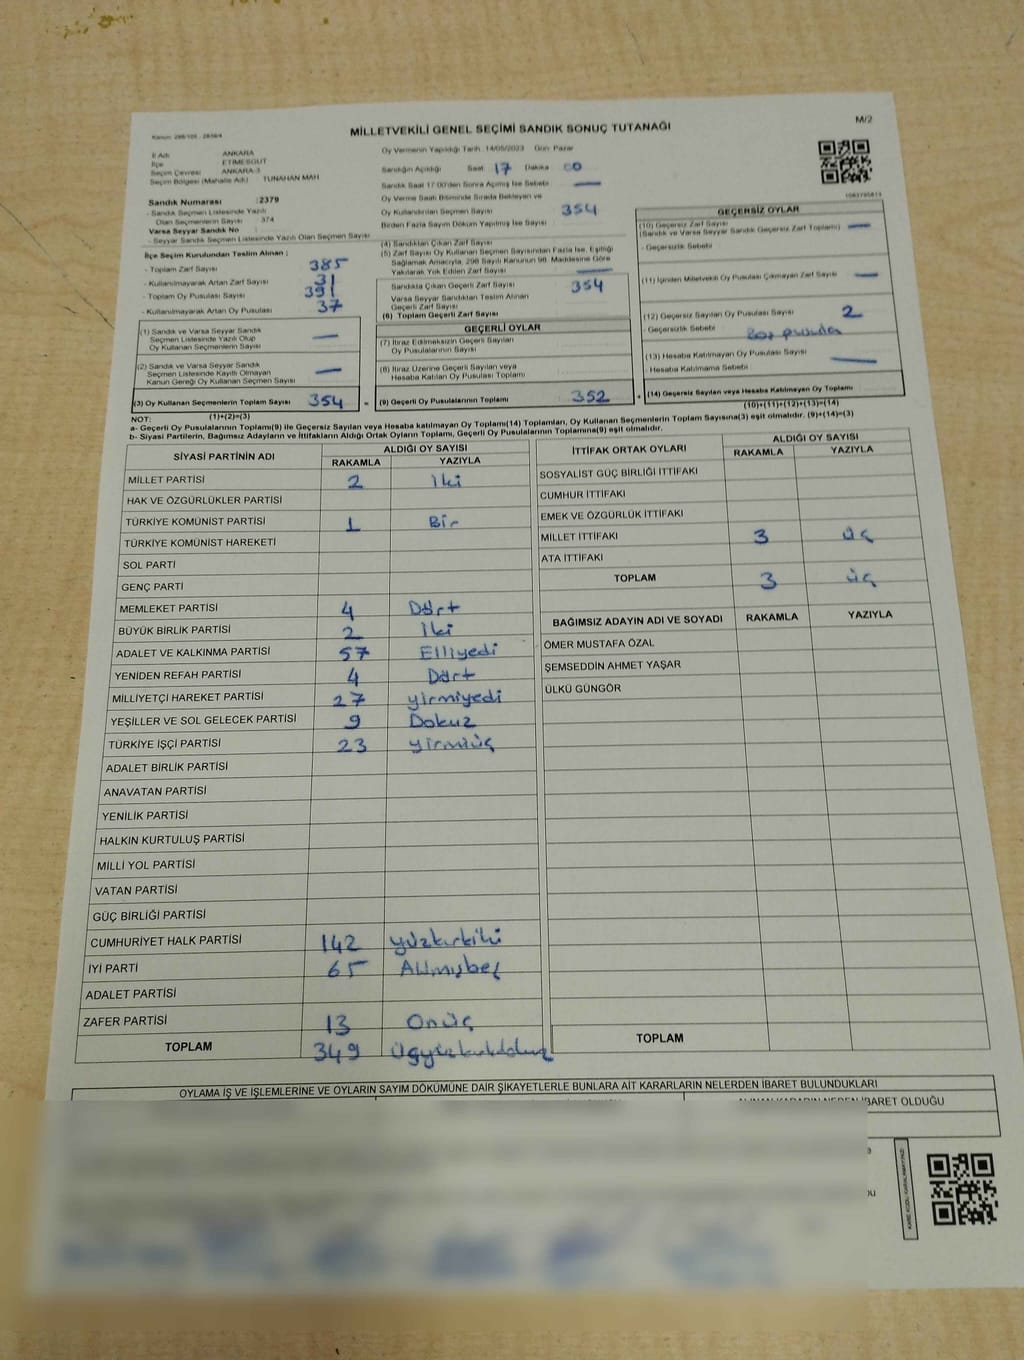 Kanun: 298/105 - 2839/4
MİLLETVEKİLİ GENEL SEÇİMİ SANDIK SONUÇ TUTANAĞI
M/2
İl Adı ANKARA
İlçe ETİMESGUT
Seçim Çevresi ANKARA-3
Seçim Bölgesi (Mahalle Adı) TUNAHAN MAH.
Sandık Numarası :2379
- Sandık Seçmen Listesinde Yazılı
Olan Seçmenlerin Sayısı : 374
Varsa Seyyar Sandık No
- Seyyar Sandık Seçmen Listesinde Yazılı Olan Seçmen Sayısı
İlçe Seçim Kurulundan Teslim Alınan ;
- Toplam Zarf Sayısı 385
- Kullanılmayarak Artan Zarf Sayısı 31
- Toplam Oy Pusulası Sayısı 391
- Kullanılmayarak Artan Oy Pusulası 37
(1) Sandık ve Varsa Seyyar Sandık
Seçmen Listesinde Yazılı Olup
Oy Kullanan Seçmenlerin Sayısı —
(2) Sandık ve Varsa Seyyar Sandık
Seçmen Listesinde Kayıtlı Olmayan
Kanun Gereği Oy Kullanan Seçmen Sayısı —
(3) Oy Kullanan Seçmenlerin Toplam Sayısı 354 =
(1)+(2)=(3)
Oy Vermenin Yapıldığı Tarih :14/05/2023 Gün Pazar
Sandığın Açıldığı Saat 17 Dakika 00
Sandık Saat 17.00'den Sonra Açılmış İse Sebebi —
Oy Verme Saati Bitiminde Sırada Bekleyen ve
Oy Kullandırılan Seçmen Sayısı 354
Birden Fazla Sayım Döküm Yapılmış İse Sayısı
(4) Sandıktan Çıkan Zarf Sayısı
(5) Zarf Sayısı Oy Kullanan Seçmen Sayısından Fazla İse, Eşitliği
Sağlamak Amacıyla, 298 Sayılı Kanunun 98. Maddesine Göre
Yakılarak Yok Edilen Zarf Sayısı —
Sandıkta Çıkan Geçerli Zarf Sayısı 354
Varsa Seyyar Sandıktan Teslim Alınan
Geçerli Zarf Sayısı
(6) Toplam Geçerli Zarf Sayısı
GEÇERLİ OYLAR
(7) İtiraz Edilmeksizin Geçerli Sayılan
Oy Pusulalarının Sayısı
(8) İtiraz Üzerine Geçerli Sayılan veya
Hesaba Katılan Oy Pusulası Toplamı
(9) Geçerli Oy Pusulalarının Toplamı 352 +
1083795813
GEÇERSİZ OYLAR
(10) Geçersiz Zarf Sayısı
(Sandık ve Varsa Seyyar Sandık Geçersiz Zarf Toplamı) —
- Geçersizlik Sebebi
(11) İçinden Milletvekili Oy Pusulası Çıkmayan Zarf Sayısı —
(12) Geçersiz Sayılan Oy Pusulası Sayısı 2
- Geçersizlik Sebebi Boş pusula
(13) Hesaba Katılmayan Oy Pusulası Sayısı —
- Hesaba Katılmama Sebebi
(14) Geçersiz Sayılan veya Hesaba Katılmayan Oy Toplamı
(10)+(11)+(12)+(13)=(14)
NOT:
a- Geçerli Oy Pusulalarının Toplamı(9) ile Geçersiz Sayılan veya Hesaba katılmayan Oy Toplamı(14) Toplamları, Oy Kullanan Seçmenlerin Toplam Sayısına(3) eşit olmalıdır. (9)+(14)=(3)
b- Siyasi Partilerin, Bağımsız Adayların ve İttifakların Aldığı Ortak Oyların Toplamı, Geçerli Oy Pusulalarının Toplamına(9) eşit olmalıdır.
SİYASİ PARTİNİN ADI ALDIĞI OY SAYISI
RAKAMLA YAZIYLA
MİLLET PARTİSİ 2 İki
HAK VE ÖZGÜRLÜKLER PARTİSİ
TÜRKİYE KOMÜNİST PARTİSİ 1 Bir
TÜRKİYE KOMÜNİST HAREKETİ
SOL PARTİ
GENÇ PARTİ
MEMLEKET PARTİSİ 4 Dört
BÜYÜK BİRLİK PARTİSİ 2 İki
ADALET VE KALKINMA PARTİSİ 57 Elliyedi
YENİDEN REFAH PARTİSİ 4 Dört
MİLLİYETÇİ HAREKET PARTİSİ 27 yirmiyedi
YEŞİLLER VE SOL GELECEK PARTİSİ 9 Dokuz
TÜRKİYE İŞÇİ PARTİSİ 23 yirmiüç
ADALET BİRLİK PARTİSİ
ANAVATAN PARTİSİ
YENİLİK PARTİSİ
HALKIN KURTULUŞ PARTİSİ
MİLLİ YOL PARTİSİ
VATAN PARTİSİ
GÜÇ BİRLİĞİ PARTİSİ
CUMHURİYET HALK PARTİSİ 142 yüzkırkiki
İYİ PARTİ 65 Altmışbeş
ADALET PARTİSİ
ZAFER PARTİSİ 13 Onüç
TOPLAM 349 Üçyüzkırkdokuz
İTTİFAK ORTAK OYLARI ALDIĞI OY SAYISI
RAKAMLA YAZIYLA
SOSYALİST GÜÇ BİRLİĞİ İTTİFAKI
CUMHUR İTTİFAKI
EMEK VE ÖZGÜRLÜK İTTİFAKI
MİLLET İTTİFAKI 3 üç
ATA İTTİFAKI
TOPLAM 3 üç
BAĞIMSIZ ADAYIN ADI VE SOYADI RAKAMLA YAZIYLA
ÖMER MUSTAFA ÖZAL
ŞEMSEDDİN AHMET YAŞAR
ÜLKÜ GÜNGÖR
TOPLAM
OYLAMA İŞ VE İŞLEMLERİNE VE OYLARIN SAYIM DÖKÜMÜNE DAİR ŞİKAYETLERLE BUNLARA AİT KARARLARIN NELERDEN İBARET BULUNDUKLARI
ALINAN KARARIN NEDEN İBARET OLDUĞU